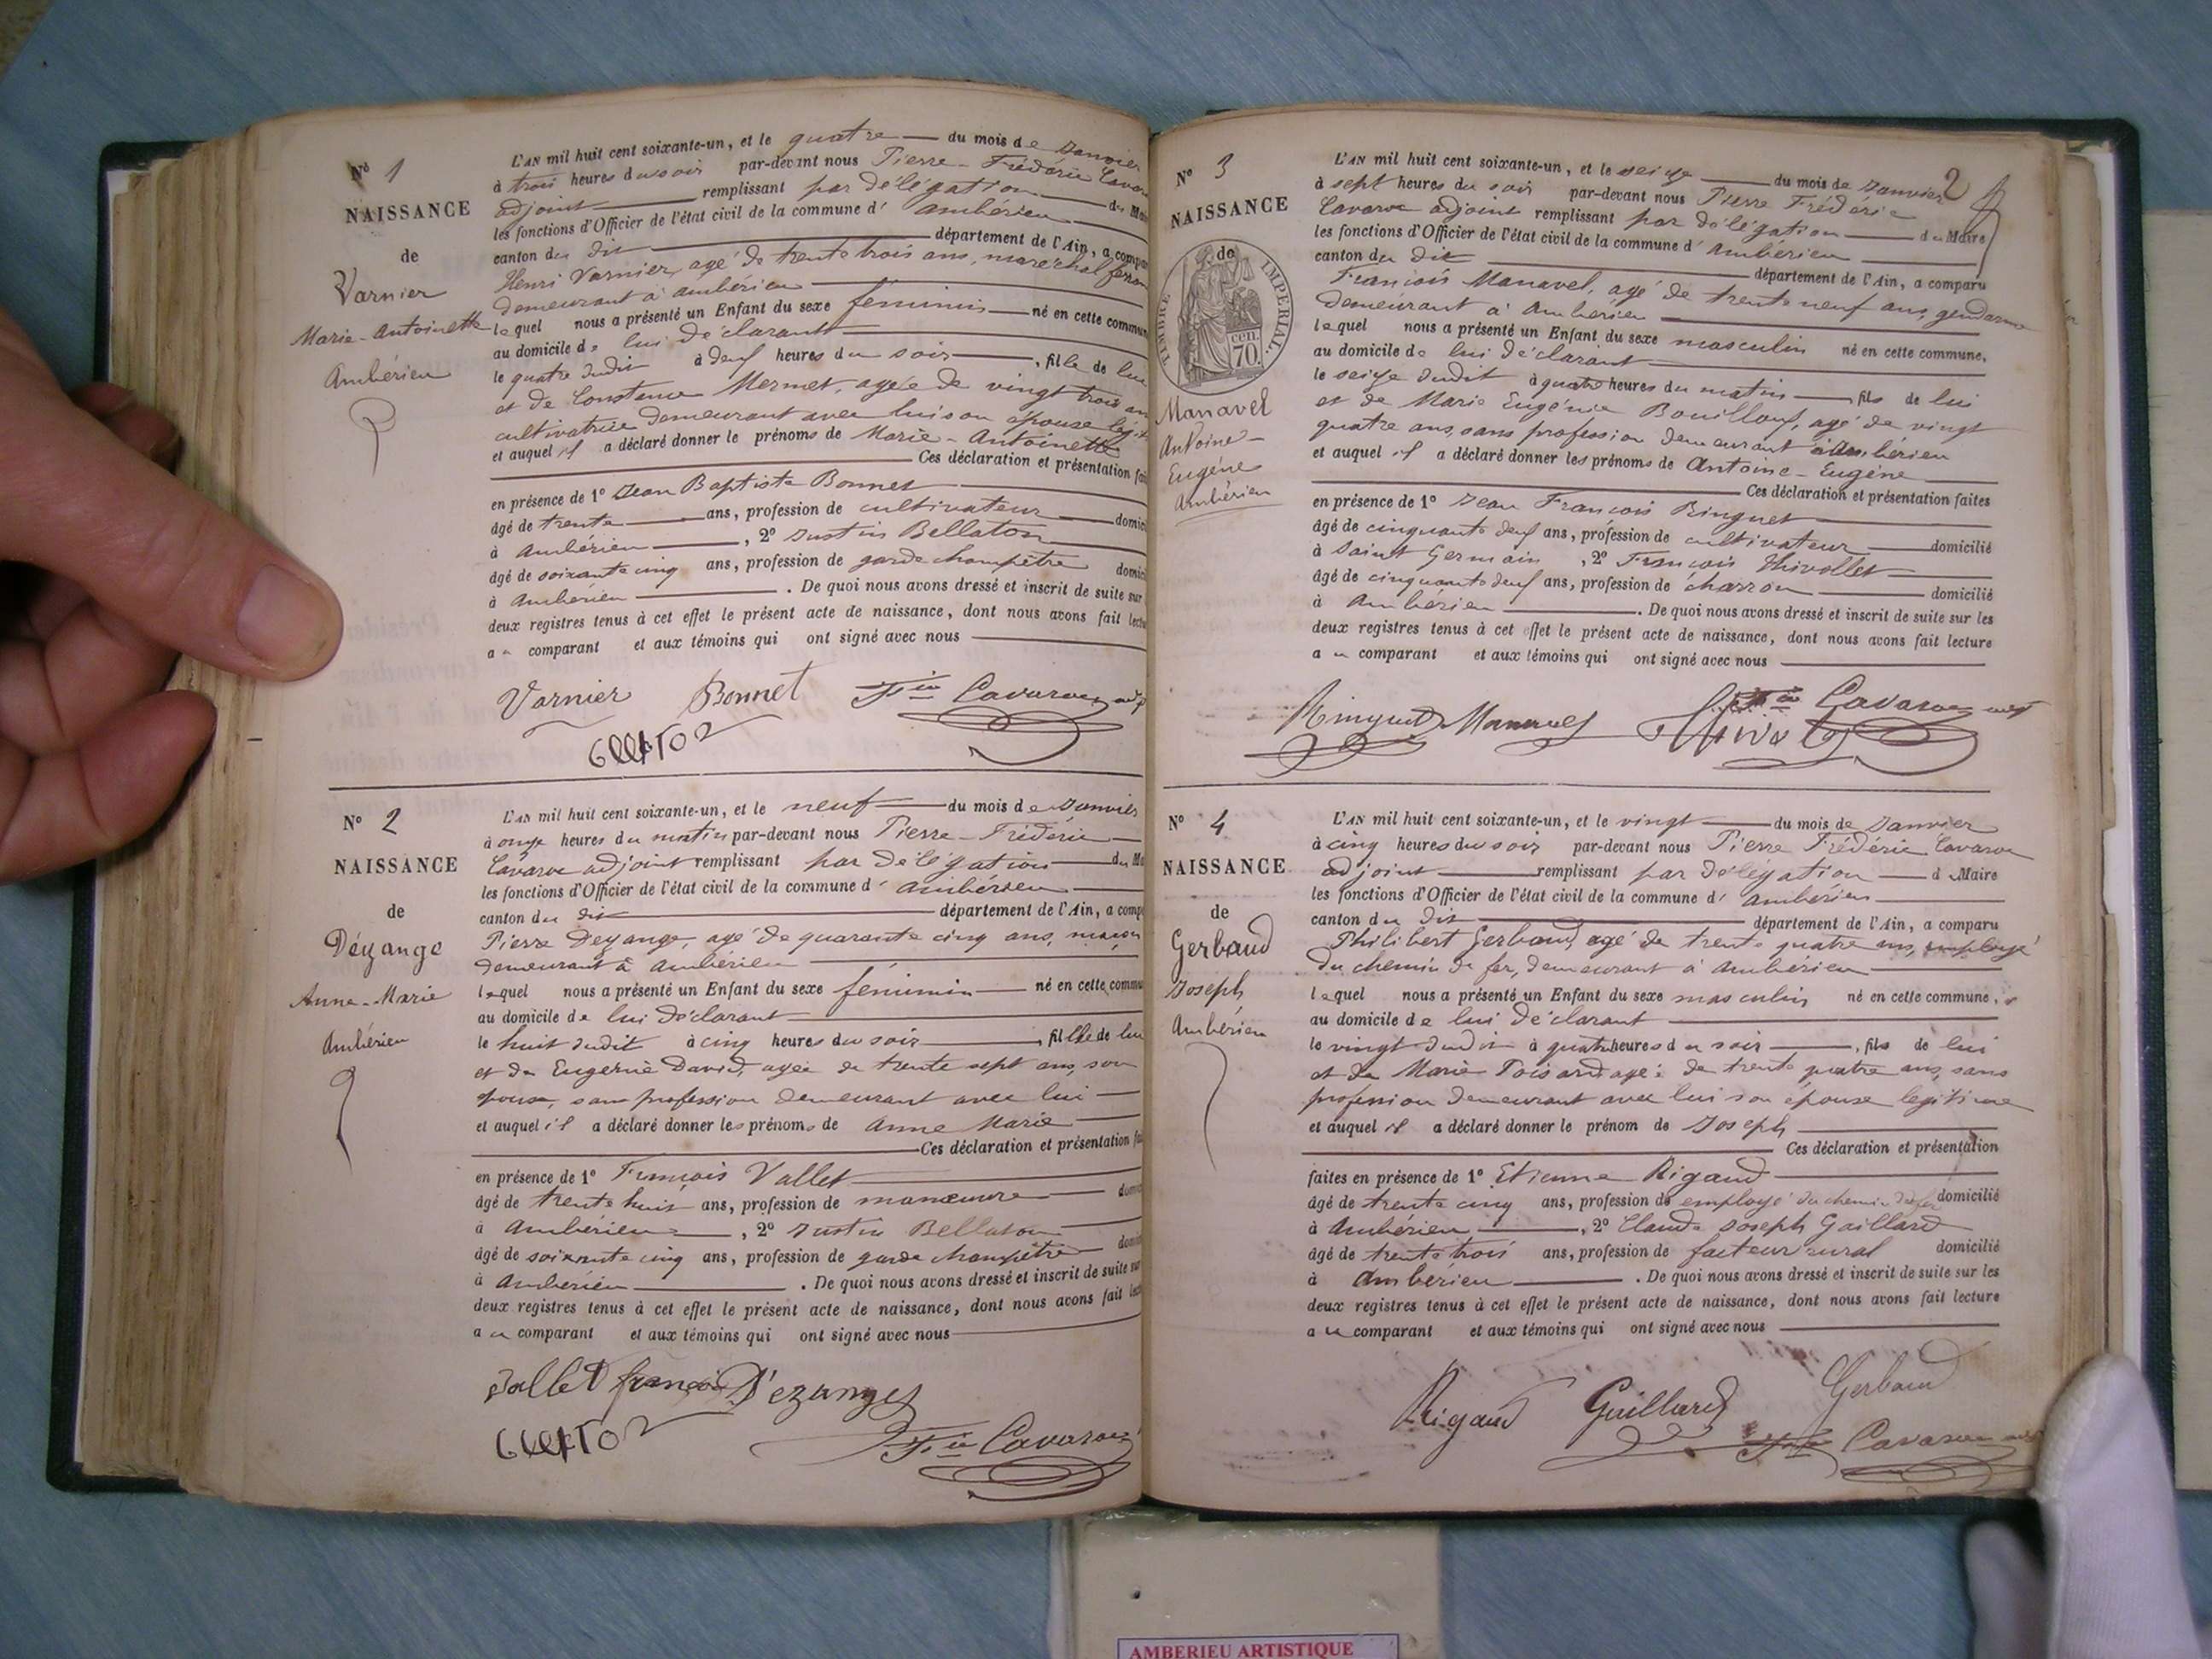 Nº 1
NAISSANCE
de
Varnier
Marie-Antoinette
Ambérieu
L'AN mil huit cent soixante-un, et le quatre du mois de Janvier
à trois heures du soir par-devant nous Pierre-Frédéric
adjoint remplissant par délégation du
les fonctions d'Officier de l'état civil de la commune d' Ambérieu
canton du dit département de l'Ain, a
Henri Varnier, agé de trente trois ans, maréchal
demeurant à Ambérieu
lequel nous a présenté un Enfant du sexe féminin né en cette
au domicile de lui déclarant
le quatre dudit à deux heures du soir, fille de lui
et de Constance Mermet, agée de vingt trois
cultivatrice demeurant avec lui son épouse
et auquel il a déclaré donner le prénoms de Marie-Antoinette
Ces déclaration et présentation
en présence de 1º Jean Baptiste Bonnet
âgé de trente ans, profession de cultivateur
à Ambérieu, 2º Justin Bellaton
âgé de soixante cinq ans, profession de garde champêtre
à Ambérieu. De quoi nous avons dressé et inscrit de suite sur
deux registres tenus à cet effet le présent acte de naissance, dont nous avons fait
au comparant et aux témoins qui ont signé avec nous
Varnier Bonnet
Nº 2
NAISSANCE
de
Dézange
Anne-Marie
Ambérieu
L'AN mil huit cent soixante-un, et le neuf du mois de Janvier
à onze heures du matin par-devant nous Pierre-Frédéric
Cavaroc adjoint remplissant par délégation du
les fonctions d'Officier de l'état civil de la commune d' Ambérieu
canton du dit département de l'Ain, a
Pierre Dezange, agé de quarante cinq ans, maçon
demeurant à Ambérieu
lequel nous a présenté un Enfant du sexe féminin né en cette
au domicile de lui déclarant
le huit dudit à cinq heures du soir, fille de lui
et de Eugenie David, agée de trente sept ans, son
épouse, sans profession demeurant avec lui
et auquel il a déclaré donner les prénoms de Anne Marie
Ces déclaration et présentation
en présence de 1º François Vallet
âgé de trente huit ans, profession de manœuvre
à Ambérieu, 2º Justin Bellaton
âgé de soixante cinq ans, profession de garde champêtre
à Ambérieu. De quoi nous avons dressé et inscrit de suite sur
deux registres tenus à cet effet le présent acte de naissance, dont nous avons fait
au comparant et aux témoins qui ont signé avec nous
Vallet françois Dezanges
2
Nº 3
NAISSANCE
de
TIMBRE IMPERIAL
70 cen.
Manavel
Antoine-
Eugéne
Ambérieu
L'AN mil huit cent soixante-un, et le seize du mois de Janvier
à sept heures du soir par-devant nous Pierre Frédéric
Cavaroc adjoint remplissant par délégation du Maire
les fonctions d'Officier de l'état civil de la commune d' Ambérieu
canton du dit département de l'Ain, a comparu
François Manavel, agé de trente neuf ans, gendarme
demeurant à Ambérieu
lequel nous a présenté un Enfant du sexe masculin né en cette commune,
au domicile de lui déclarant
le seize dudit à quatre heures du matin fils de lui
et de Marie Eugénie Bouilloux, agé de vingt
quatre ans, sans profession demeurant à Ambérieu
et auquel il a déclaré donner les prénoms de Antoine-Eugène
Ces déclaration et présentation faites
en présence de 1º Jean François Ringuet
âgé de cinquante deux ans, profession de cultivateur domicilié
à Saint Germain, 2º François Thivollet
âgé de cinquante deux ans, profession de charron domicilié
à Ambérieu. De quoi nous avons dressé et inscrit de suite sur les
deux registres tenus à cet effet le présent acte de naissance, dont nous avons fait lecture
au comparant et aux témoins qui ont signé avec nous
Ringuet Manavel
Nº 4
NAISSANCE
de
Gerbaud
Joseph
Ambérieu
L'AN mil huit cent soixante-un, et le vingt du mois de Janvier
à cinq heures du soir par-devant nous Pierre Frédéric Cavaroc
adjoint remplissant par délégation du Maire
les fonctions d'Officier de l'état civil de la commune d' Ambérieu
canton du dit département de l'Ain, a comparu
Philibert Gerbaud, agé de trente quatre ans, employé
du chemin de fer, demeurant à Ambérieu
lequel nous a présenté un Enfant du sexe masculin né en cette commune,
au domicile de lui déclarant
le vingt dudit à quatre heures du soir, fils de lui
et de Marie agée de trente quatre ans, sans
profession demeurant avec lui son épouse legitime
et auquel il a déclaré donner le prénom de Joseph
Ces déclaration et présentation
faites en présence de 1º Etienne Rigaud
âgé de trente cinq ans, profession de employé du chemin de fer domicilié
à Ambérieu, 2º Claude Joseph Gaillard
âgé de trente trois ans, profession de facteur rural domicilié
à Ambérieu. De quoi nous avons dressé et inscrit de suite sur les
deux registres tenus à cet effet le présent acte de naissance, dont nous avons fait lecture
au comparant et aux témoins qui ont signé avec nous
Rigaud Gaillard Gerbaud
AMBERIEU ARTISTIQUE